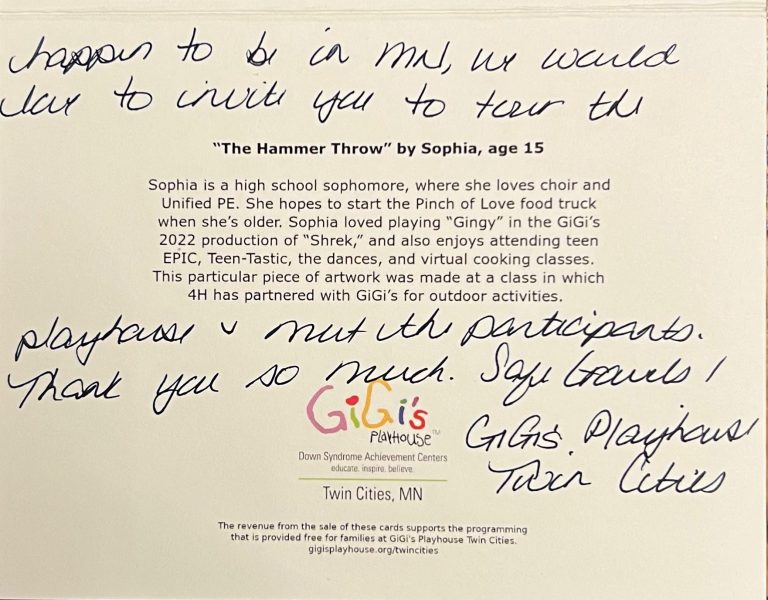 happen to be in MN, we would
love to invite you to tour the
"The Hammer Throw" by Sophia, age 15
Sophia is a high school sophomore, where she loves choir and
Unified PE. She hopes to start the Pinch of Love food truck
when she's older. Sophia loved playing "Gingy" in the GiGi's
2022 production of "Shrek," and also enjoys attending teen
EPIC, Teen-Tastic, the dances, and virtual cooking classes.
This particular piece of artwork was made at a class in which
4H has partnered with GiGi's for outdoor activities.
playhouse & meet the participants.
Thank you so much. Safe travels!
GiGi's
PLAYHOUSE™
Down Syndrome Achievement Centers
educate. inspire. believe.
Twin Cities, MN
GiGi's Playhouse
Twin Cities
The revenue from the sale of these cards supports the programming
that is provided free for families at GiGi's Playhouse Twin Cities.
gigisplayhouse.org/twincities